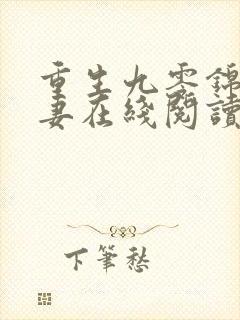 重生九零錦
妻在綫閱讀
下筆愁